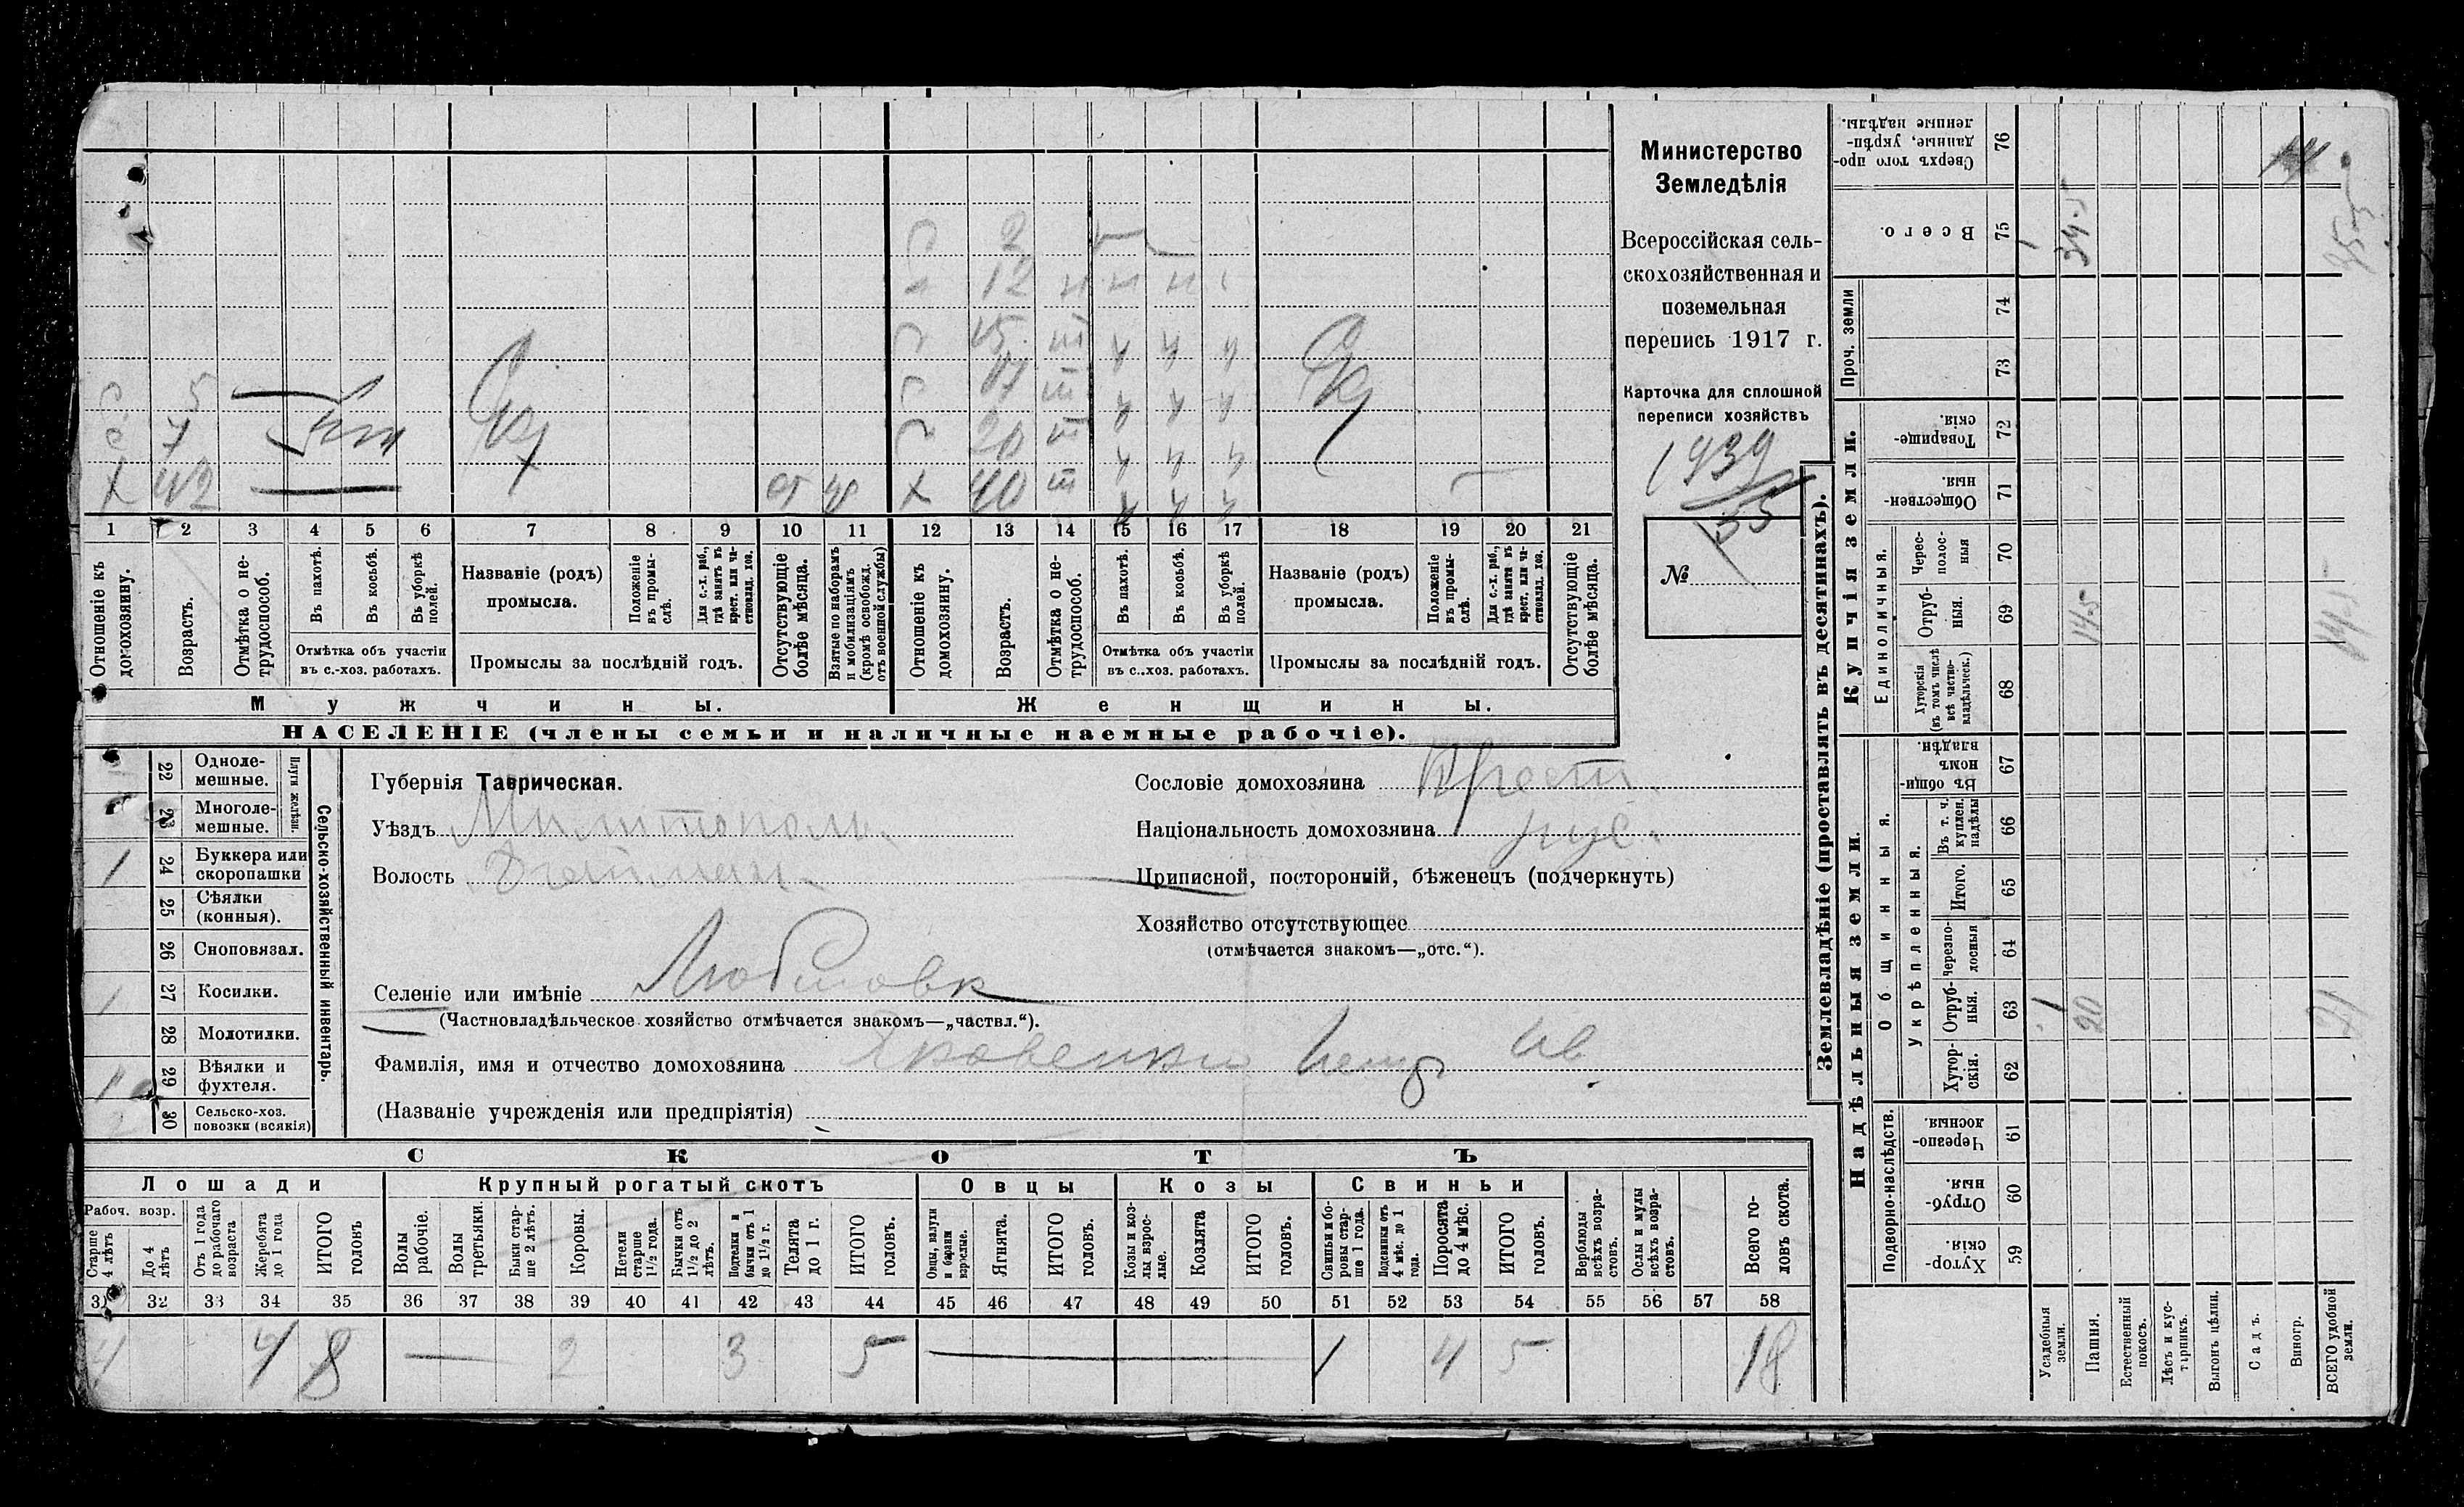 Министерство
Земледѣлія
Всероссійская сель-
скохозяйственная и
поземельная
перепись 1917 г.
Карточка для сплошной
переписи хозяйствъ
1939
55
№
с 2
с 12 н н н
с 15 ш ч ч ч
с 17 ш ч ч ч
с 5 с 20 ш ч ч ч
с 7
х 42 от х 40 ш ч ч ч
1 2 3 4 5 6 7 8 9 10 11 12 13 14 15 16 17 18 19 20 21
Отношеніе къ домохозяину.
Возрастъ.
Отмѣтка о не-трудоспособ.
Въ пахотѣ.
Въ косьбѣ.
Въ уборкѣ полей.
Отмѣтка объ участіи
въ с.-хоз. работахъ.
Названіе (родъ)
промысла.
Положеніе въ промы-слѣ.
Для с.-х. раб., гдѣ занятъ въ крест. или ча-стновлад. хоз.
Промыслы за послѣдній годъ.
Отсутствующіе болѣе мѣсяца.
Взятые по наборамъ и мобилизаціямъ (кромѣ освобожд. отъ военной службы)
Отношеніе къ домохозяину.
Возрастъ.
Отмѣтка о не-трудоспособ.
Въ пахотѣ.
Въ косьбѣ.
Въ уборкѣ полей.
Отмѣтка объ участіи
въ с..хоз. работахъ.
Названіе (родъ)
промысла.
Положеніе въ промы-слѣ.
Для с.-х. раб., гдѣ занята въ крест. или ча-стновлад. хоз.
Промыслы за послѣдній годъ.
Отсутствующіе болѣе мѣсяца.
Мужчины. Женщины.
НАСЕЛЕНІЕ (члены семьи и наличные наемные рабочіе).
22 Одноле-мешные.
23 Многоле-мешные.
Плуги желѣзн.
1 24 Буккера или скоропашки
25 Сѣялки (конныя).
26 Сноповязал.
1 27 Косилки.
28 Молотилки.
1 29 Вѣялки и фухтеля.
2 30 Сельско-хоз. повозки (всякія)
Сельско-хозяйственный инвентарь.
Губернія Таврическая.
Уѣздъ Милитополь.
Волость
Сословіе домохозяина Крест.
Національность домохозяина рус.
Приписной, посторонній, бѣженецъ (подчеркнуть)
Хозяйство отсутствующее
(отмѣчается знакомъ—„отс.“).
Селеніе или имѣніе Любимовк
(Частновладѣльческое хозяйство отмѣчается знакомъ—„частвл.“).
Фамилія, имя и отчество домохозяина Яковенко Ив.
(Названіе учрежденія или предпріятія)
СКОТЪ
Лошади Крупный рогатый скотъ Овцы Козы Свиньи
Рабоч. возр.
Старше 4 лѣтъ
До 4 лѣтъ
Отъ 1 года до рабочаго возраста
Жеребята до 1 года
ИТОГО головъ
Волы рабочіе.
Волы третьяки.
Быки стар-ше 2 лѣтъ.
Коровы.
Нетели старше 1½ года.
Бычки отъ 1½ до 2 лѣтъ.
Подтелки и бычки отъ 1 до 1½ г.
Телята до 1 г.
ИТОГО головъ.
Овцы, валухи и бараны взрослые.
Ягнята.
ИТОГО головъ.
Козы и коз-лы взрос-лые.
Козлята
ИТОГО головъ.
Свиньи и бо-ровы стар-ше 1 года.
Подсвинки отъ 4 мѣс. до 1 года.
Поросята до 4 мѣс.
ИТОГО головъ.
Верблюды всѣхъ возра-стовъ.
Ослы и мулы всѣхъ возра-стовъ.
Всего го-ловъ скота.
31 32 33 34 35 36 37 38 39 40 41 42 43 44 45 46 47 48 49 50 51 52 53 54 55 56 57 58
4 4 8 — 2 3 5 — 1 4 5 18
Землевладѣніе (проставлять въ десятинахъ).
Надѣльныя земли.
Подворно-наслѣдств.
Хутор-скія. 59
Отруб-ныя. 60
Черезпо-лосныя. 61
Общинныя.
Укрѣпленныя.
Хутор-скія. 62
Отруб-ныя. 63 1 20 21
Черезпо-лосныя 64
Итого. 65
Въ т. ч. куплен. надѣлы 66
Въ общи-номъ владѣн. 67
Купчія земли.
Единоличныя.
Хуторскія (въ томъ числѣ всѣ частно-владѣльческ.) 68
Отруб-ныя. 69 14.5 14.5
Черес-полос-ныя 70
Обществен-ныя. 71
Товарище-скія. 72
Проч. земли
73
74
Всего. 75 1 34.5 35.5
Сверхъ того про-данные, укрѣп-ленные надѣлы. 76
Усадебныя земли.
Пашня.
Естественный покосъ.
Лѣсъ и кус-тарникъ.
Выгонъ цѣлин.
Садъ.
Виногр.
ВСЕГО удобной земли.